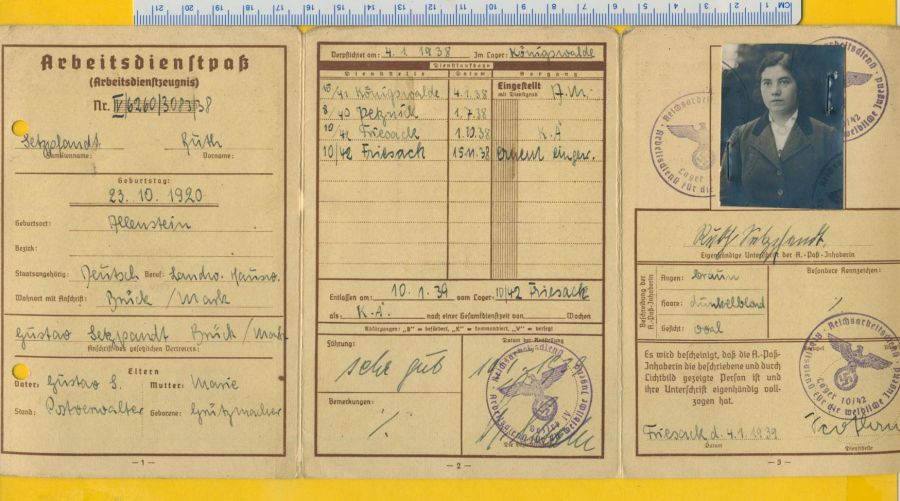 CM 1 2 3 4 5 6 7 8 9 10 11 12 13 14 15 16 17 18 19 20 21
Arbeitsdienstpaß
(Arbeitsdienstzeugnis)
Nr. IV/6260/3083/38
Setzpfandt Ruth
Familienname: Vorname:
Geburtstag:
23. 10. 1920
Geburtsort: Allenstein
Bezirk:
Staatsangehörig: Deutsch Beruf: Landw. Hausw.
Wohnort mit Anschrift: Brück / Mark
Gustav Setzpfandt Brück / Mark
Anschrift des gesetzlichen Vertreters:
Eltern
Vater: Gustav S. Mutter: Marie
Stand: Postverwalter Geborene: Grützmacher
- 1 -
Verpflichtet am: 4. 1. 1938 Im Lager: Königswalde
Dienstlaufbahn
Dienststelle Datum Vorgang
10/41 Königswalde 4.1.38 Eingestellt mit Dienstgrad A.M.
8/40 1.7.38
10/42 Friesack 1.10.38 K.Ä
10/42 Friesack 15.11.38 ernent einger.
Entlassen am: 10. 1. 39 vom Lager: 10/42 Friesack
als K.Ä. nach einer Gesamtdienstzeit von Wochen
Abkürzungen: „B" = befördert, „K" = kommandiert, „V" = versetzt
Führung: Datum der Ausstellung
sehr gut
Bemerkungen:
Reichsarbeitsdienst
Arbeitsdienst für die weibliche Jugend
Bezirk IV
- 2 -
Reichsarbeitsdienst
Arbeitsdienst für die weibliche Jugend
Lager 10/42
Ruth Setzpfandt.
Eigenhändige Unterschrift der A.-Paß-Inhaberin
Beschreibung der A.-Paß-Inhaberin
Augen: braun Besondere Kennzeichen:
Haare: dunkelblond
Gesicht: oval
Es wird bescheinigt, daß die A.-Paß-
Inhaberin die beschriebene und durch
Lichtbild gezeigte Person ist und
ihre Unterschrift eigenhändig voll-
zogen hat.
Reichsarbeitsdienst
Arbeitsdienst für die weibliche Jugend
Lager 10/42
Friesack d. 4. 1. 1939
Datum Dienststelle
- 3 -